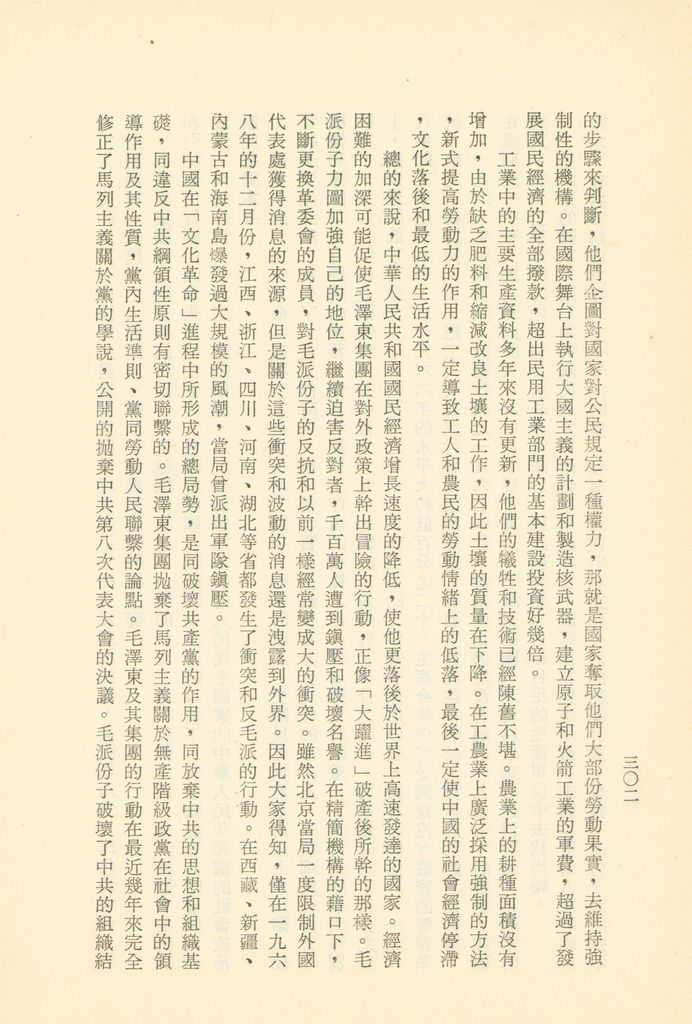 的步驟來判斷，他們企圖對國家對公民規定一種權力，那就是國家奪取他們大部份勞動果實，去維持強
制性的機構。在國際舞台上執行大國主義的計劃和製造核武器，建立原子和火箭工業的軍費，超過了發
展國民經濟的全部撥款，超出民用工業部門的基本建設投資好幾倍。
工業中的主要生產資料多年來沒有更新，他們的犧牲和技術已經陳舊不堪。農業上的耕種面積沒有
增加，由於缺乏肥料和縮減改良土壤的工作，因此土壤的質量在下降。在工農業上廣泛採用強制的方法
，新式提高勞動力的作用，一定導致工人和農民的勞動情緒上的低落，最後一定使中國的社會經濟停滯
，文化落後和最低的生活水平。
總的來說，中華人民共和國國民經濟增長速度的降低，使他更落後於世界上高速發達的國家。經濟
困難的加深可能促使毛澤東集團在對外政策上幹出冒險的行動，正像「大躍進」破產後所幹的那樣。毛
派份子力圖加強自己的地位，繼續迫害反對者，千百萬人遭到鎭壓和破壞名譽。在精簡機構的藉口下，
不斷更換革委會的成員，對毛派份子的反抗和以前一樣經常變成大的衝突。雖然北京當局一度限制外國
代表處獲得消息的來源，但是關於這些衝突和波動的消息還是洩露到外界。因此大家得知，僅在一九六
八年的十二月份，江西、浙江、四川、河南、湖北等省都發生了衝突和反毛派的行動。在西藏、新疆、
內蒙古和海南島爆發過大規模的風潮，當局曾派出軍隊鎭壓。
中國在「文化革命」進程中所形成的總局勢，是同破壞共產黨的作用，同放棄中共的思想和組織基
礎，同違反中共綱領性原則有密切聯繫的。毛澤東集團拋棄了馬列主義關於無產階級政黨在社會中的領
導作用及其性質，黨內生活準則、黨同勞動人民聯繫的論點。毛澤東及其集團的行動在最近幾年來完全
修正了馬列主義關於黨的學說，公開的拋棄中共第八次代表大會的決議。毛派份子破壞了中共的組織結
三〇二